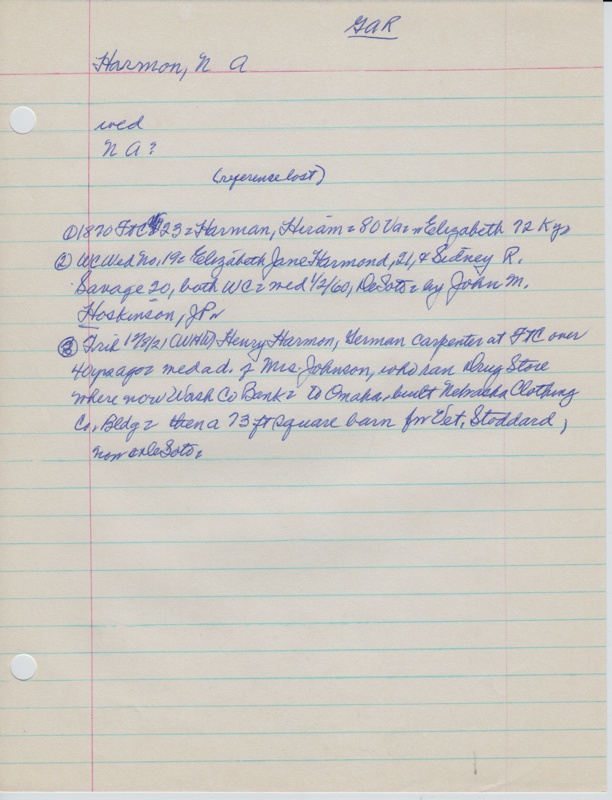 GAR
Harmon, N A
wed
N A?
(reference lost)
① 1870 FtC 23 = Harman, Hiram = 80 Va = Elizabeth 72 Ky
② WC Wed No. 19 = Elizabeth Jane Harmond, 21, & Sidney R.
Savage 20, both WC = wed 1/2/60, DeSoto = by John M.
Hoskinson, JP
③ Trib 12/8/21 Henry Harmon, German carpenter at FtC over
40 yrs ago = wed ad. of Mrs. Johnson, who ran Drug Store
where now Wash Co Bank = To Omaha, built Nebraska Clothing
Co. Bldg = then a 73 ft square barn for Vet. Stoddard,
now DeSoto.